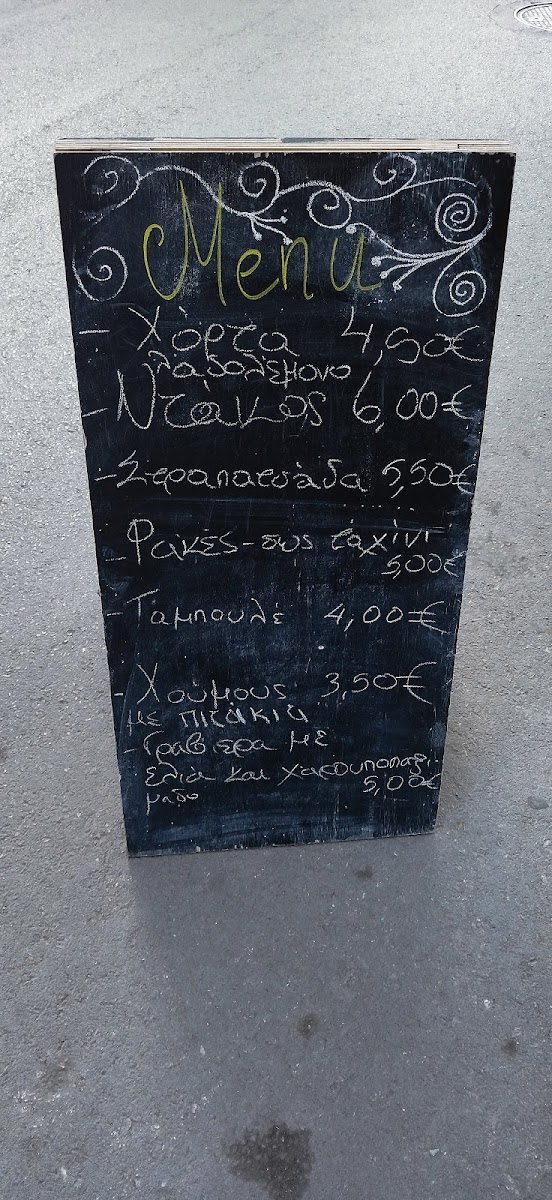 Menu
- Χόρτα 4,50€
λαδολέμονο
- Ντάκος 6,00€
- Στραπατσάδα 5,50€
- Φακές-σως ταχίνι
5,00€
- Ταμπουλέ 4,00€
- Χούμους 3,50€
με πιτάκια
- Γραβιέρα με
ελιά και χαρουποπαξι
5,00€
μαδο